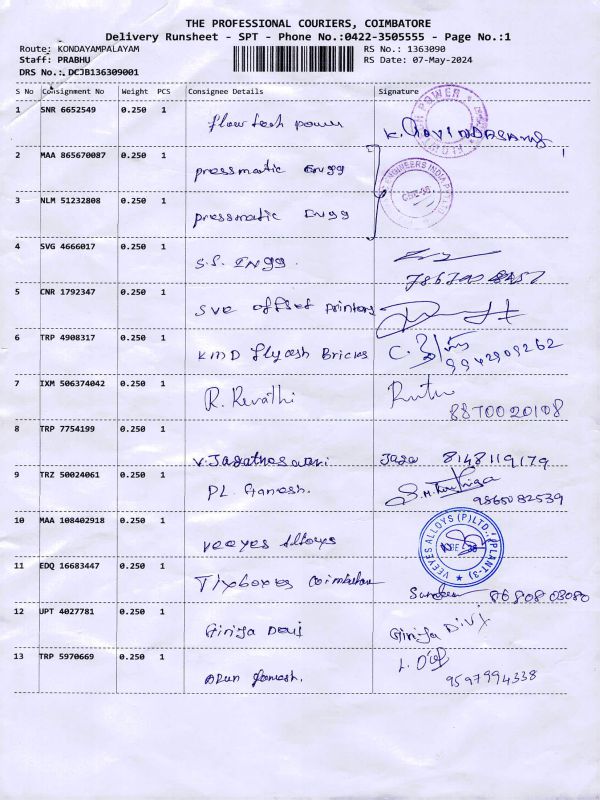 THE PROFESSIONAL COURIERS, COIMBATORE
Delivery Runsheet - SPT - Phone No.:0422-3505555 - Page No.:1
Route: KONDAYAMPALAYAM RS No.: 1363090
Staff: PRABHU RS Date: 07-May-2024
DRS No.: DCJB136309001
S No Consignment No Weight PCS Consignee Details Signature
1 SNR 6652549 0.250 1 flow tech power K. GOVINDASAMY
2 MAA 865670087 0.250 1 pressmatic Engg
3 NLM 51232808 0.250 1 pressmatic Engg
4 SVG 4666017 0.250 1 S.S. Engg.
5 CNR 1792347 0.250 1 sve offset printers
6 TRP 4908317 0.250 1 KMD flyash Bricks 9942909262
7 IXM 506374042 0.250 1 R. Revathi
8870020108
8 TRP 7754199 0.250 1 V. Jagatheswari Jaga 8148119179
9 TRZ 50024061 0.250 1 PL. Ganesh. 9865082539
10 MAA 108402918 0.250 1 veeyes Alloys VEEYES ALLOYS (P) LTD., (PLANT-3)
11 EDQ 16683447 0.250 1 Coimbatore 86808 03080
12 UPT 4027781 0.250 1 Girija Devi Girija Divi
13 TRP 5970669 0.250 1 Arun Ganesh. 9597994338